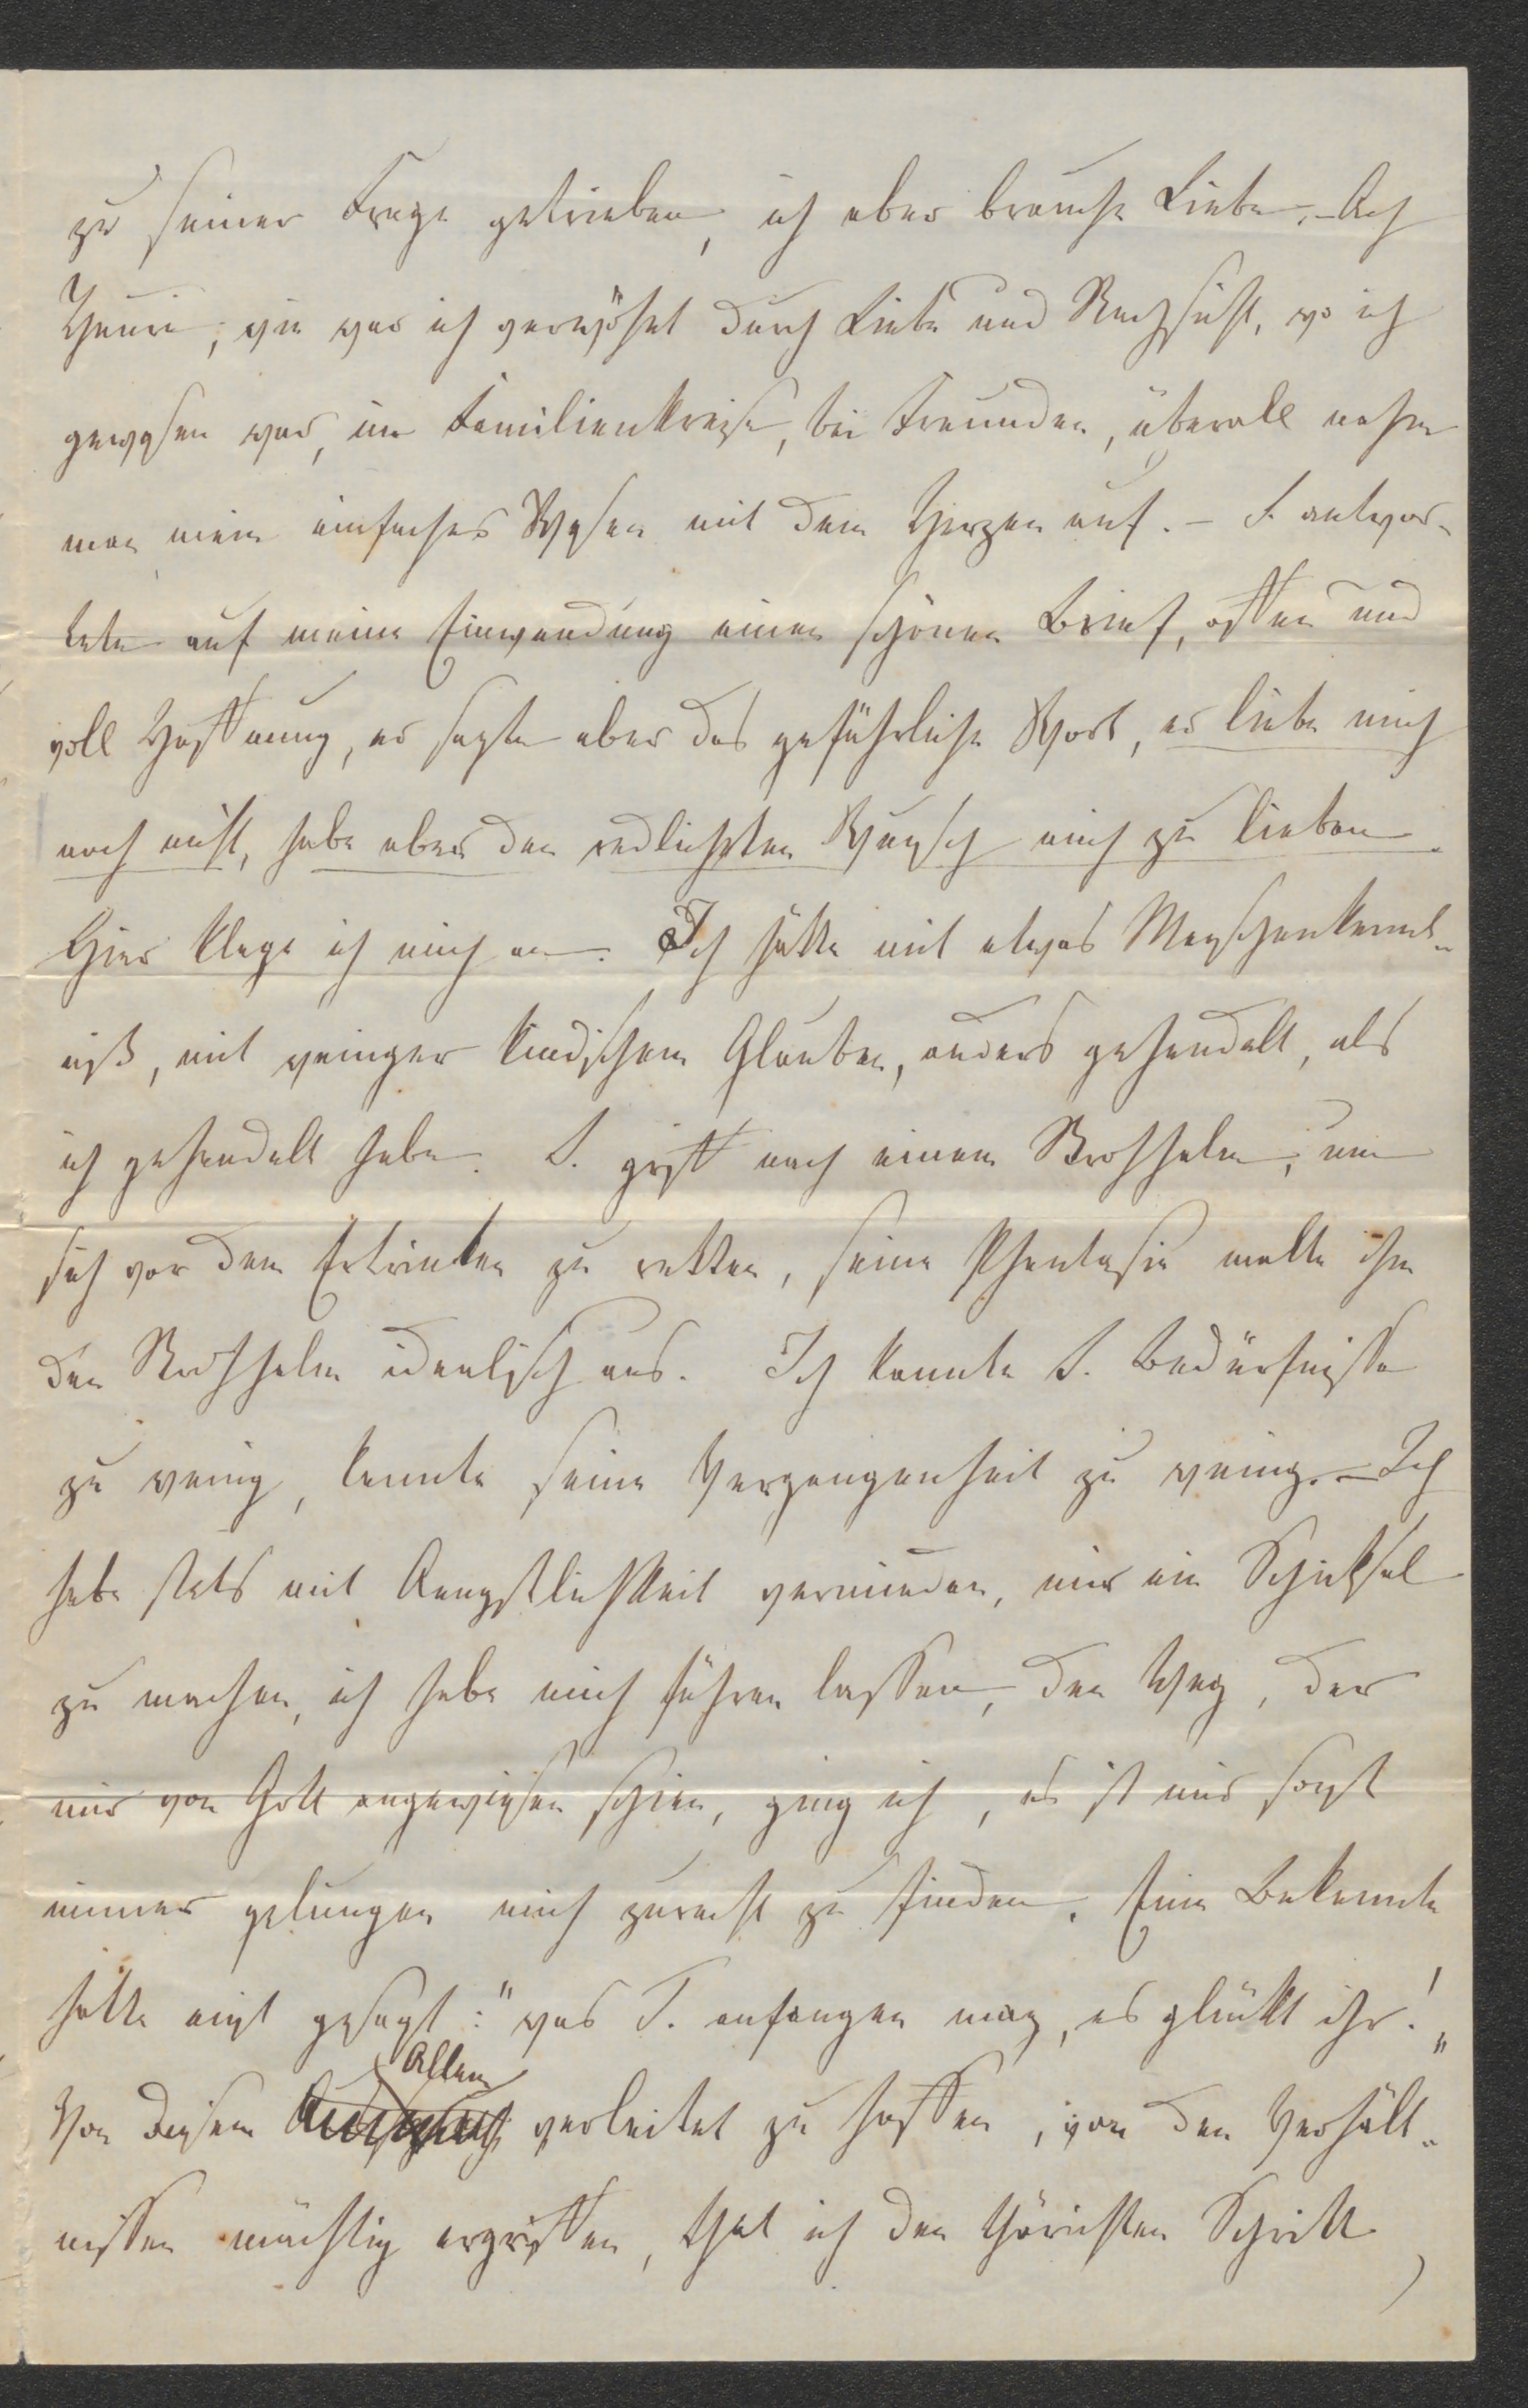 zu seiner Frage getrieben, ich aber brauche Liebe. – Ach
Henri, wie war ich verwöhnt durch Liebe und Nachsicht, wo ich
gewesen war, im Familienkreise, bei Freunden, überall nahm
man mein einfaches Wesen mit dem Herzen auf. – S. antwor-
tete auf meine Einwendung einen schönen Brief, offen und
voll Hoffnung, er sagte aber das gefährliche Wort, er liebe mich
noch nicht, habe aber den redlichsten Wunsch mich zu lieben.
Hier klage ich mich an. Ich hätte mit etwas Menschenkennt-
niß, mit weniger kindischem Glauben, anders gehandelt, als
ich gehandelt habe. S. griff nach einem Strohhalm, um
sich vor dem Ertrinken zu retten, seine Phantasie malte ihm
den Strohhalm idealisch aus. Ich kannte S. Bedürfnisse
zu wenig, kannte seine Vergangenheit zu wenig. – Ich
habe stets mit Aengstlichkeit vermieden, mir ein Schicksal
zu machen, ich habe mich führen lassen, den Weg, der
mir von Gott angewiesen schien, ging ich, es ist mir sonst
immer gelungen mich zurecht zu finden. Eine Bekannte
hatte einst gesagt: "was T. anfangen mag, es glückt ihr!"
Allem
Von diesem verleitet zu hoffen, von den Verhält-
nissen mächtig ergriffen, that ich den thörichten Schritt,